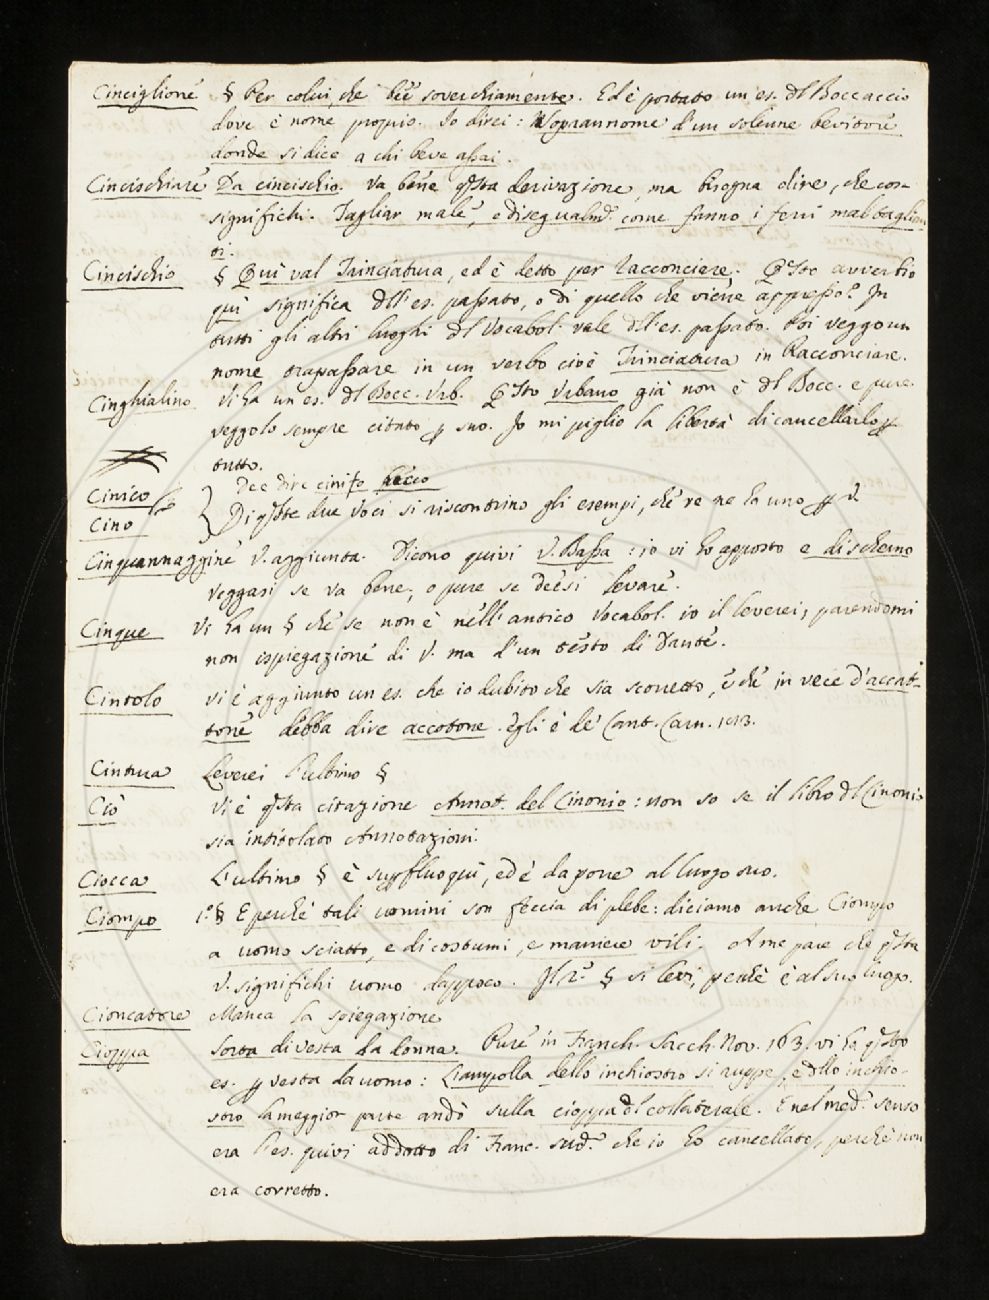 Cinciglione § Per colui, che bee soverchiamente. Ed è portato un es. dl Boccaccio
dove è nome proprio. Io direi: Soprannome d'un solenne bevitore
donde si dice a chi beve assai.
Cincischiare Da cincischio. Va bene qsta derivazione, ma bisogna dire, che cosa
significhi. Tagliar male, e disegualmte. come fanno i ferri mal taglien
ti.
Cincischio § Qui val Trinciatura, ed è detto per racconciere. Qsto avverbio
qui significa dll'es. passato, o di quello che viene appresso? In
tutti gli altri luoghi dl Vocabol. vale dll'es. passato. Poi veggo un
nome trapassare in un verbo cioè Trinciatura in Racconciare.
Cinghialino Vi ha un es. dl Bocc. Urb. Qsto Urbano già non è dl Bocc. e pure
veggolo sempre citato p suo. Io mi piglio la libertà di cancellarlo p
tutto.
Dee dire cinifo
Cinico
Cino } Di qste due voci si riscontrino gli esempi, chè re ne ha uno p V.
Cinquannaggine V. aggiunta. Dicono quivi V. Bassa: io vi ho apposto e di scherno
veggasi se va bene, o pure se deesi levare.
Cinque Vi ha un § che se non è nell'antico Vocabol. io il leverei, parendomi
non ispiegazione di V. ma d'un testo di Dante.
Cintolo Vi è aggiunto un es. che io dubito che sia scorretto, e che in vece d'accat-
tone debba dire accotone. Egli è de' Cant. Carn. 113.
Cintura Leverei l'ultimo §
Ciò Vi è qsta citazione Annot. del Cinonio: non so se il libro dl Cinonio
sia intitolato Annotazioni.
Ciocca L'ultimo § è suppfluo quì, ed è da porre al luogo suo.
Ciompo 1.° § E perchè tali uomini son feccia di plebe: diciamo anche Ciompo
a uomo sciatto, e di costumi, e maniere vili. A me pare che qsta
V. significhi uomo dappoco. Il 2.° § si levi, perchè è al suo luogo.
Cioncatore Manca la spiegazione
Cioppa Sorta di vesta da donna. Pure in Franch. Sacch. Nov. 163. vi ha qsto
es. p vesta da uomo: L'ampolla dello inchiostro si ruppe, e dllo inchio-
stro la maggior parte andò sulla cioppa dl collaterale. E nel med. senso
era l'es. quivi addotto di Franc. sud. che io ho cancellato, perchè non
era corretto.